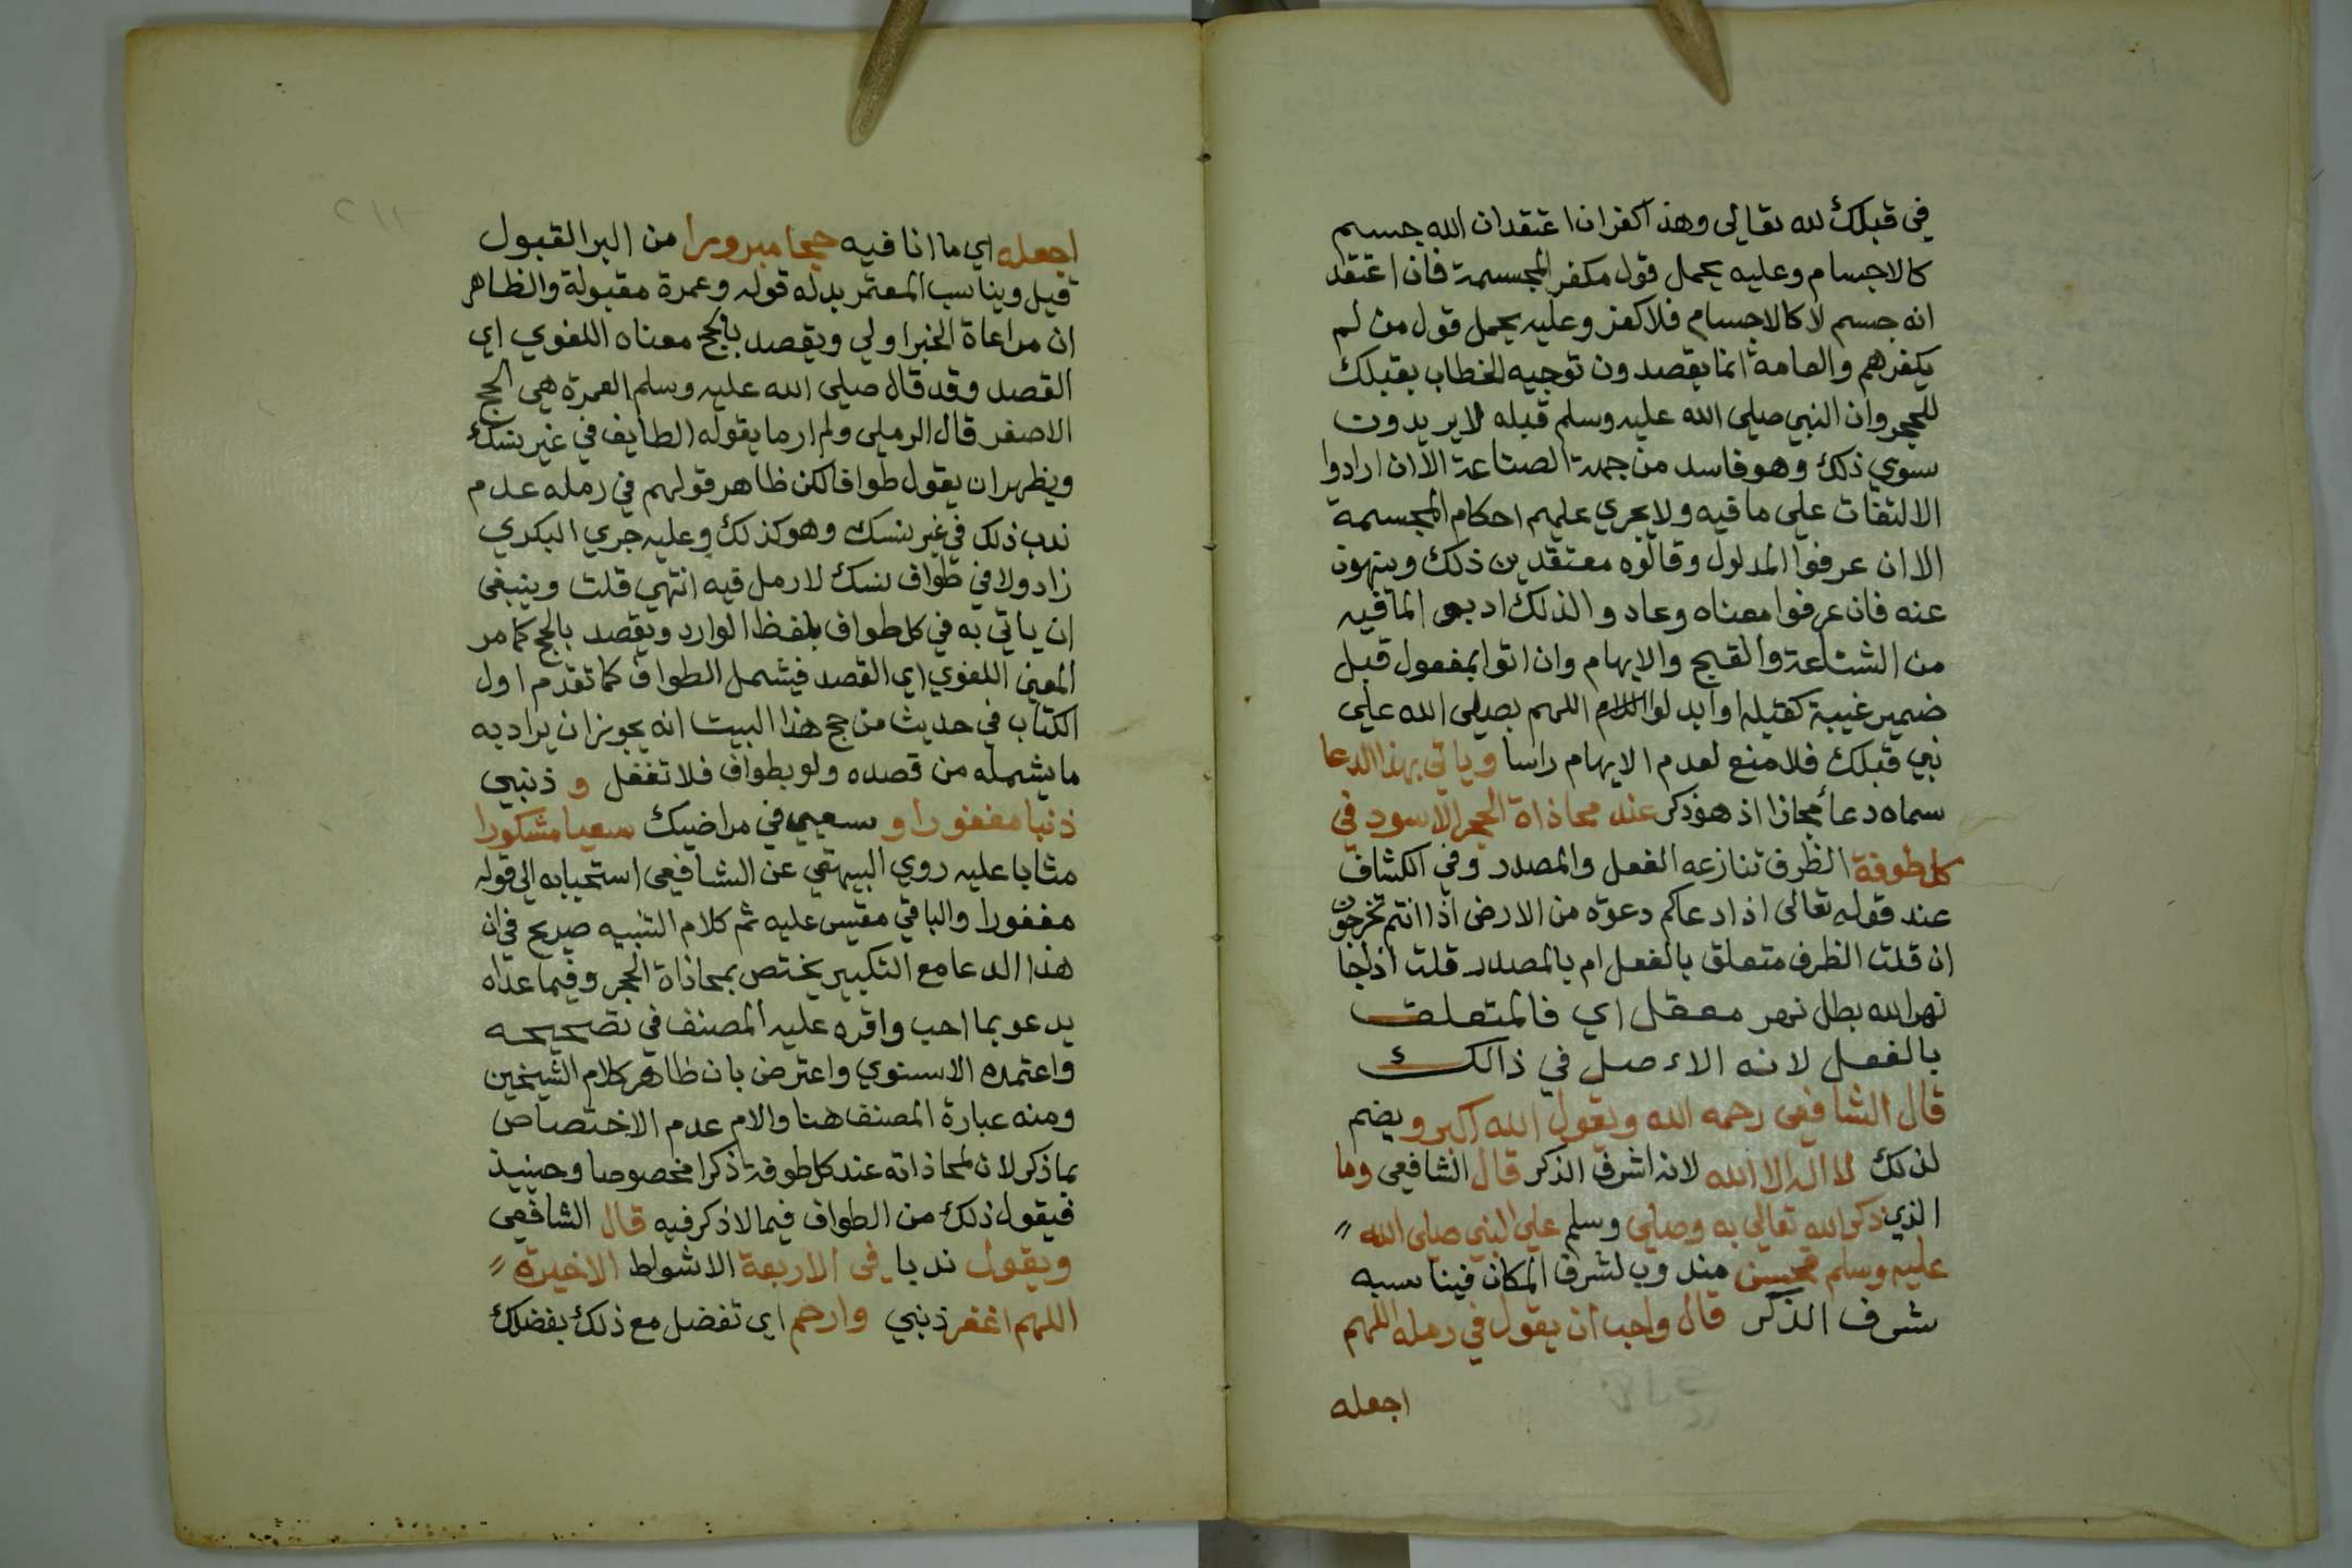 في قبلك لله تعالى وهذا كفر ان اعتقد ان الله جسم
كالاجسام وعليه يحمل قول مكفر المجسمة فان اعتقد
انه جسم لا كالاجسام فلا كفر وعليه يحمل قول من لم
يكفرهم والعامة انما يقصدون توجيه الخطاب بقبلك
للحجر وان النبي صلى الله عليه وسلم قبله لا يريدون
سوي ذلك وهو فاسد من جهة الصناعة الا ان ارادوا
الالتفات علي ما فيه ولا يجري عليهم احكام المجسمة
الا ان عرفوا المدلول وقالوه معتقدين ذلك وينهون
عنه فان عرفوا معناه وعادوا لذلك ادبوا لما فيه
من الشناعة والقبح والايهام وان اتوا بمفعول قبل
ضمير غيبة كقبله او ابدلوا اللهم بصلى الله علي
نبي قبلك فلا منع لعدم الايهام راسا وياتي بهذا الدعا
سماه دعأ مجازا اذ هو ذكر عند محاذاة الحجر الاسود في
كل طوفة الظرف تنازعه الفعل والمصدر وفي الكشاف
عند قوله تعالى اذا دعاكم دعوة من الارض اذا انتم تخرجون
ان قلت الظرف متعلق بالفعل ام بالمصدر قلت اذا جا
نهر الله بطل نهر معقل اي فالمتعلق
بالفعل لانه الاءصل في ذالك
قال الشافعي رحمه الله ويقول الله اكبر ويضم
لذلك لا اله الا الله لانه اشرف الذكر قال الشافعي وما
الذي ذكر الله تعالي به وصلي وسلم علي النبي صلى الله
عليه وسلم فحسن مندوب لشرف المكان فيناسبه
شرف الذكر قال واحب ان يقول في رمله اللهم
اجعله
اجعله اي ما انا فيه حجا مبرورا من البر القبول
قيل ويناسب المعتمر بدله قوله وعمرة مقبولة والظاهر
ان مراعاة الخبر اولي ويقصد بالحج معناه اللغوي اي
القصد وقد قال صلى الله عليه وسلم العمرة هي الحج
الاصغر قال الرملي ولم ار ما يقوله الطايف في غير نسك
ويظهر ان يقول طوافا لكن ظاهر قولهم في رمله عدم
ندب ذلك في غير نسك وهو كذلك وعليه جري البكري
زاد ولا في طواف نسك لا رمل فيه انتهي قلت وينبغي
ان ياتي به في كل طواف بلفظ الوارد ويقصد بالحج كما مر
المعني اللغوي اي القصد فيشمل الطواف كما تقدم اول
الكتاب في حديث من حج هذا البيت انه يجوز ان يراد به
ما يشمله من قصده ولو بطواف فلا تغفل و ذنبي
ذنبا مغفورا و سعيي في مراضيك سعيا مشكورا
مثابا عليه روي البيهقي عن الشافعي استحبابه الي قوله
مغفورا والباقي مقيس عليه ثم كلام التنبيه صريح في ان
هذا الدعا مع التكبير يختص بمحاذاة الحجر وفيما عداه
يدعو بما احب واقره عليه المصنف في تصحيحه
واعتمده الاسنوي واعترض بان ظاهر كلام الشيخين
ومنه عبارة المصنف هنا والام عدم الاختصاص
بما ذكر لان لمحاذاته عند كل طوفة ذكرا مخصوصا وحينيذ
فيقول ذلك من الطواف فيما لا ذكر فيه قال الشافعي
ويقول ندبا في الاربعة الاشواط الاخيرة
اللهم اغفر ذنبي وارحم اي تفضل مع ذلك بفضلك